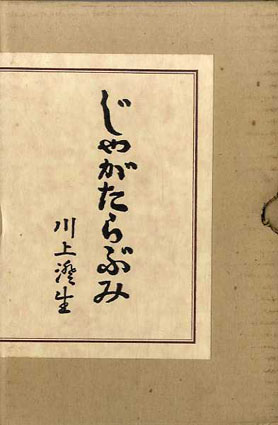 じゃがたらぶみ
川上澄生